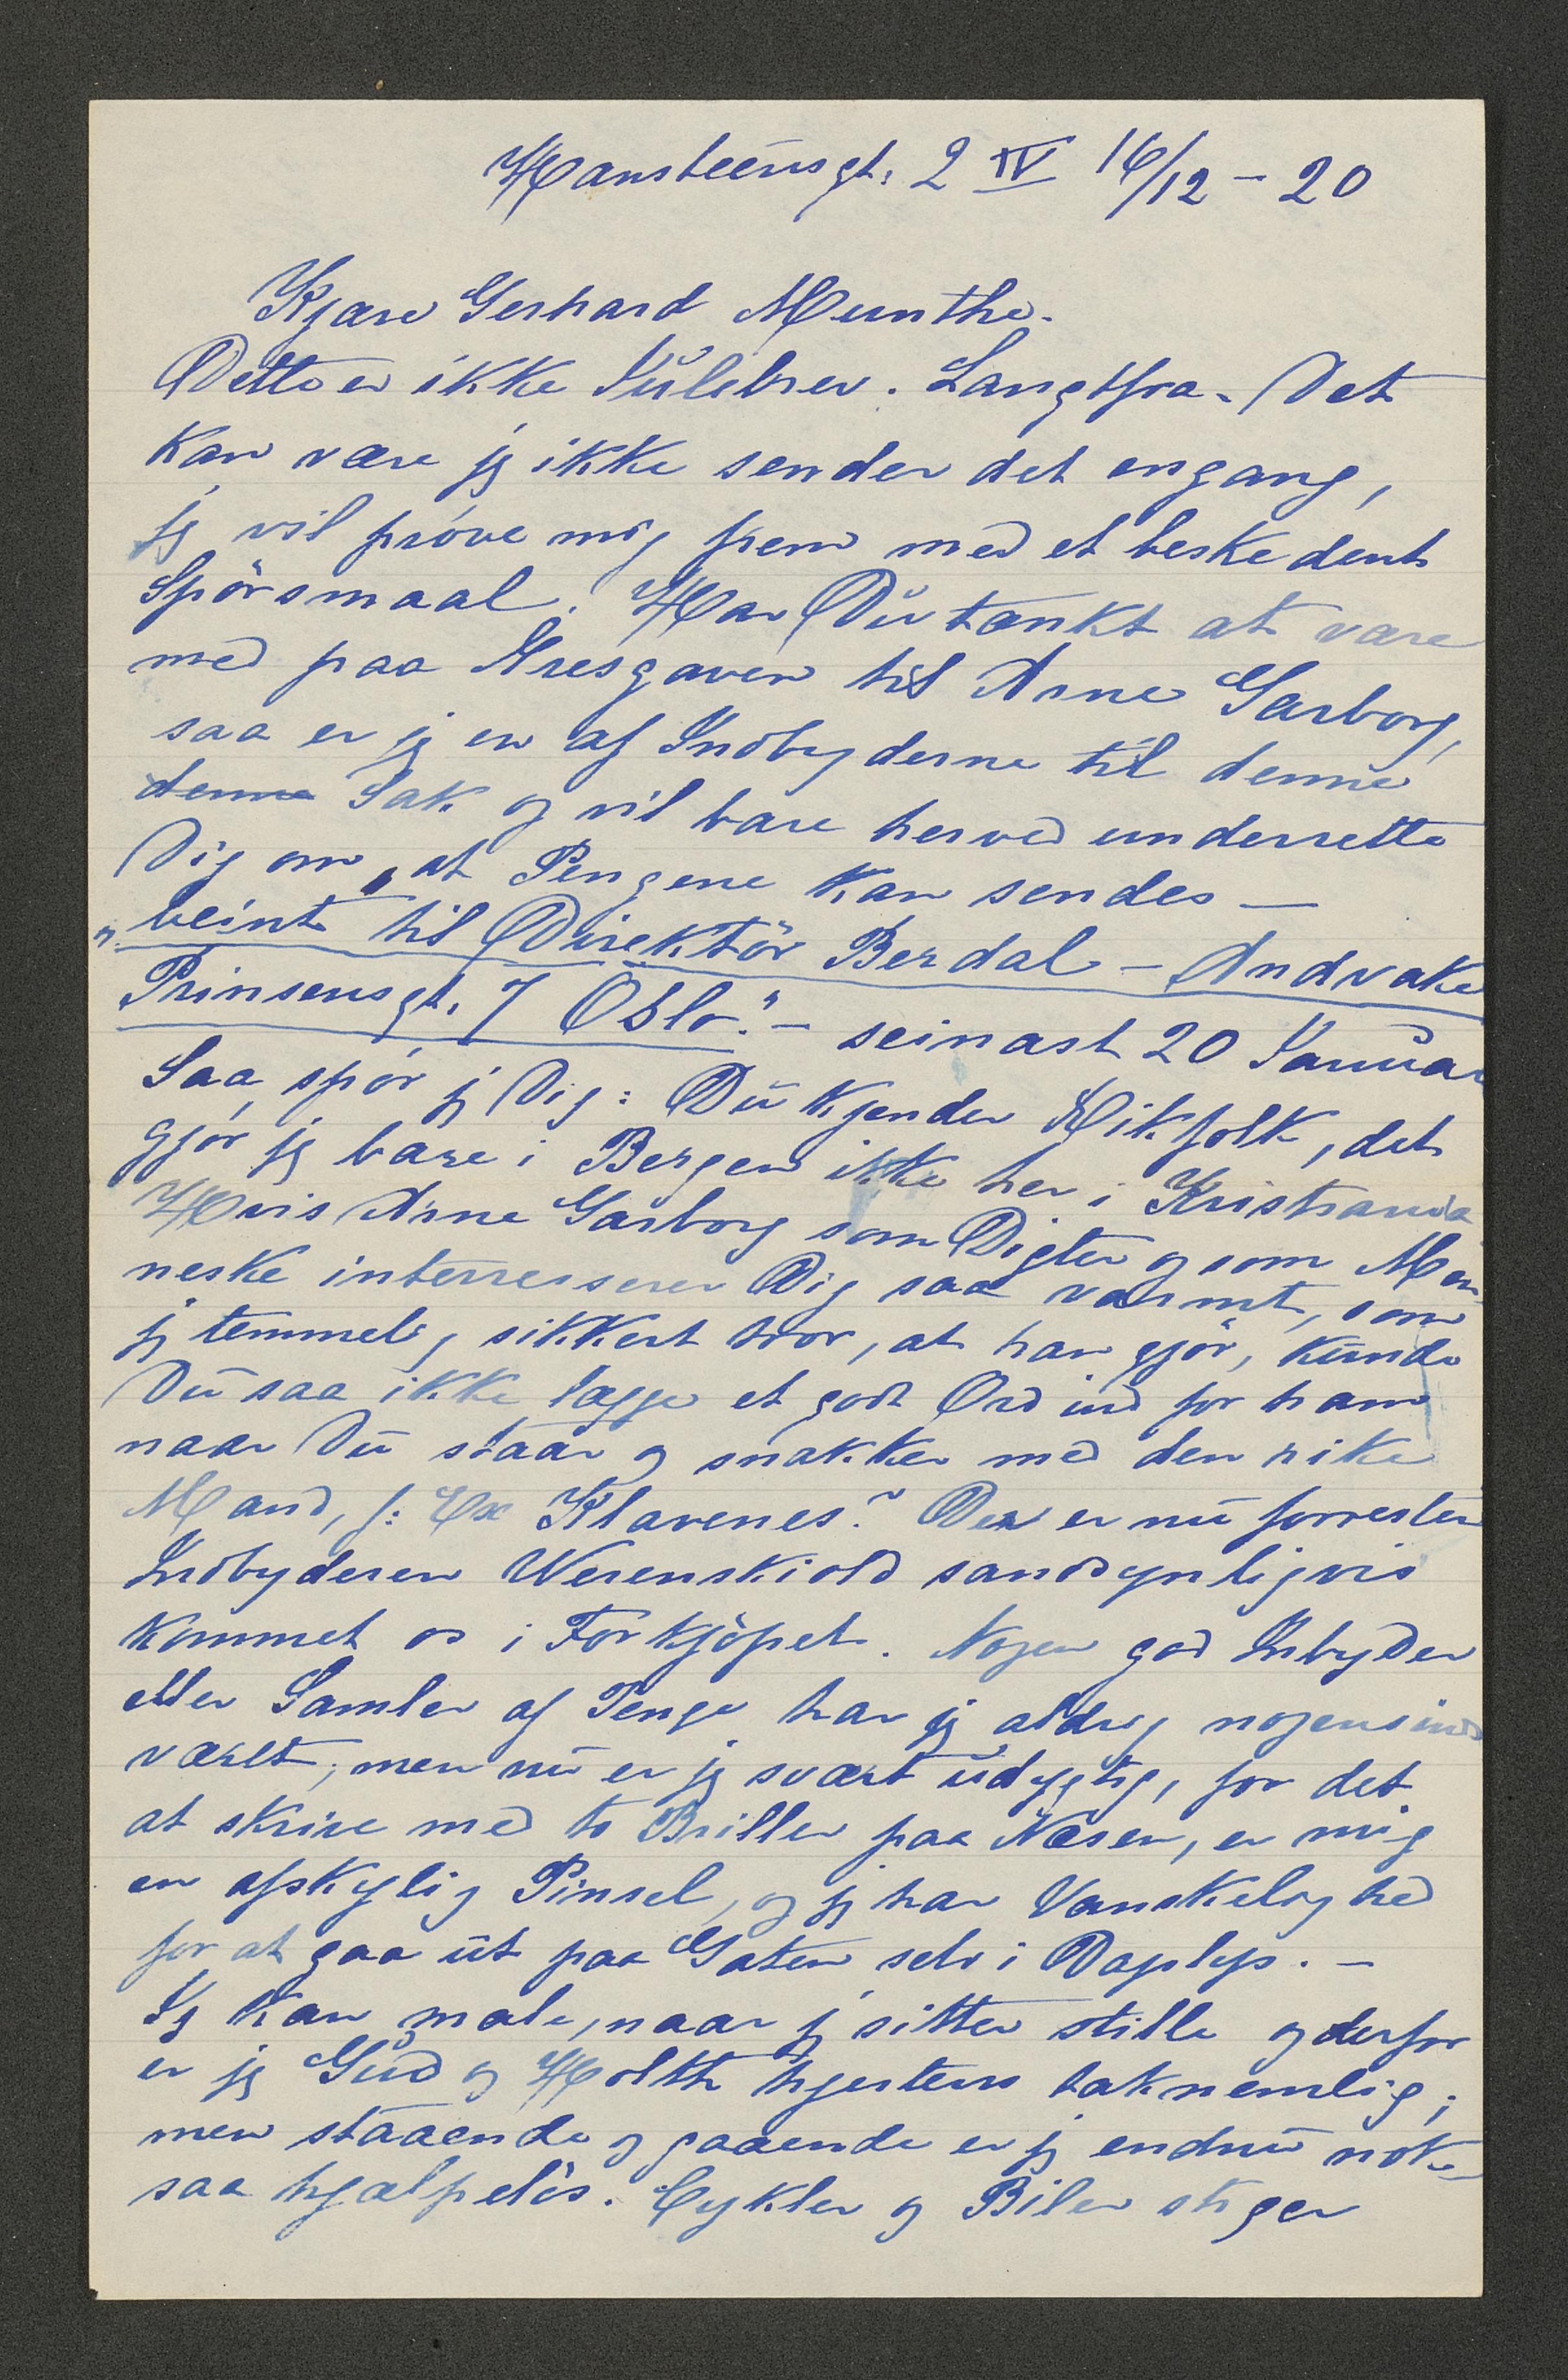 Hansteensgt. 2 IV 16/12 - 20
Kjære Gerhard Munthe.
Dette er ikke Julebrev. Langtfra. Det
kan være jeg ikke sender det engang,
jeg vil pröve mig frem med et beskedent
Spörsmaal. Har Du tænkt at være
med paa Æresgaven til Arne Garborg,
saa er jeg en af Indbyderne til denne
denne Sak og vil bare herved underrette
Dig om, at Pengene kan sendes —
"beint til Direktör Berdal - Andvake
Prinsensgt. 7 Oslo." - seinast 20 Januar
Saa spör jeg Dig: Du kjender Rikfolk, det
gjör jeg bare i Bergen ikke her i Kristiania
Hvis Arne Garborg som Digter og som Men-
neske interresserer Dig saa varmt, som
jeg temmelig sikkert tror, at han gjör, kunde
Du saa ikke lægge et godt Ord ind for ham
naar Du staar og snakker med den rike
Mand, f: Ex Klavenes? Der er nu forresten
Indbyderen Werenskiold sandsynligvis
kommet os i Forkjöpet. Nogen god Inbyder
eller Samler af Penge har jeg aldrig nogensinde
været, men nu er jeg svært udygtig, for det
at skrive med to Briller paa Næsen, er mig
en afskylig Pinsel, og jeg har Vanskelighed
for at gaa ut paa Gaten selv i Dagslys. -
Jeg kan male, naar jeg sitter stille og derfor
er jeg Gud og Holth hjertens taknemlig;
men staaende og gaaende er jeg endnu nok-
saa hjælpelös. Cykler og Biler stiger